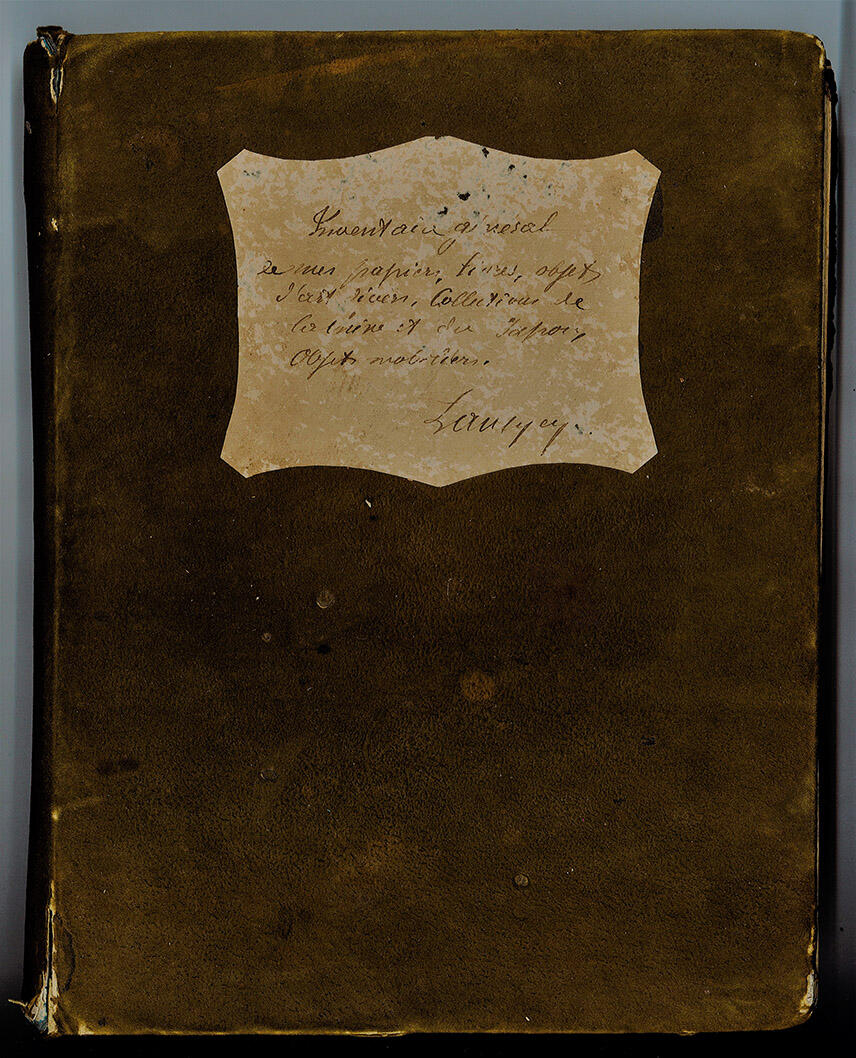 Inventaire général
de mes papiers, livres, objets
d'art divers, Collections de
la Chine et du Japon,
Objets mobiliers.
Lansyer